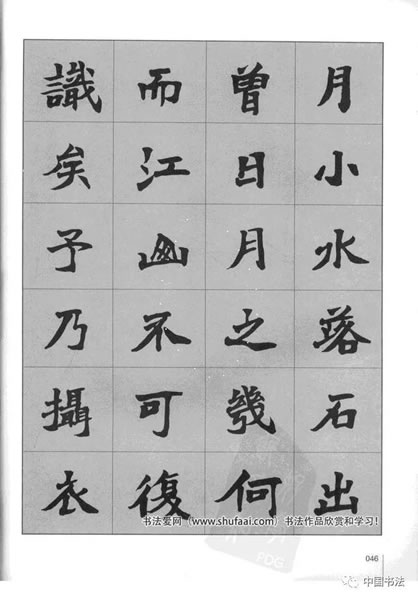 月小水落石出
曾日月之幾何
而江山不可復
識矣予乃攝衣
书法爱网（www.shufaai.com）书法作品欣赏和学习！
PDG
046
中国书法